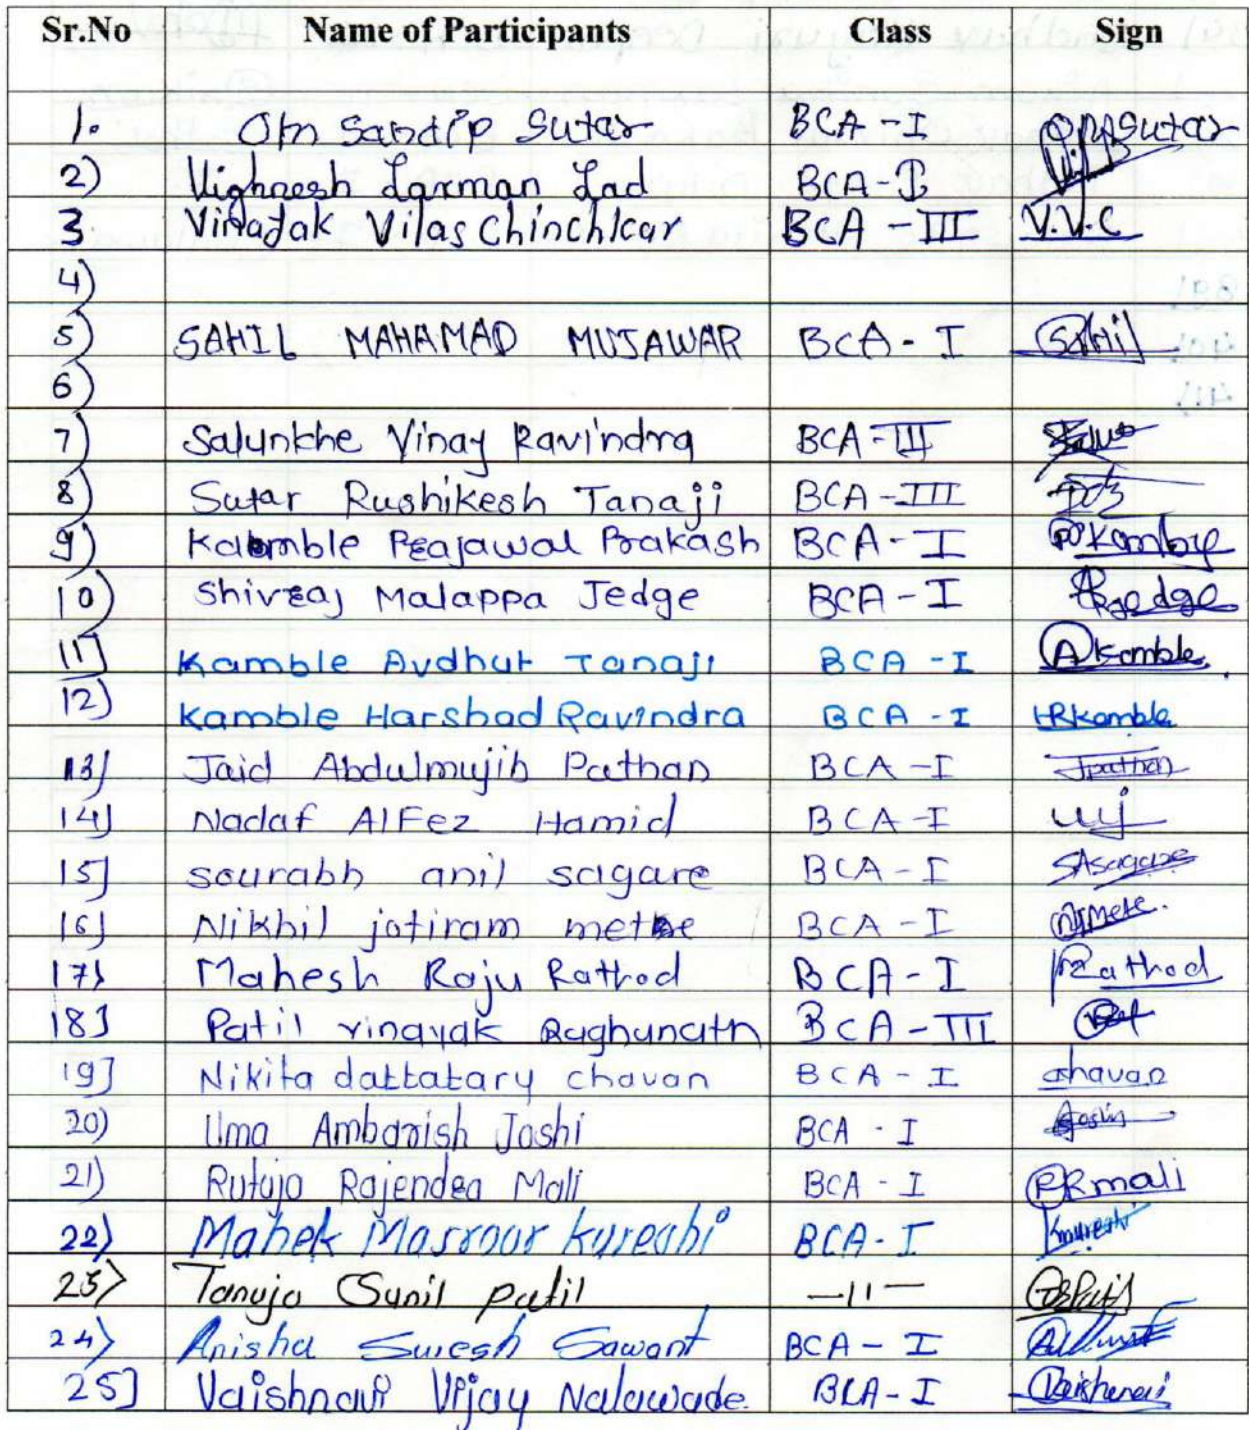 Sr.No Name of Participants Class Sign
1. Om Sandip Sutar BCA-I OmSutar
2) Vighnesh Laxman Lad BCA-I
3 Vinayak Vilas Chinchkar BCA-III V.V.C
4)
5) SAHIL MAHAMAD MUJAWAR BCA-I Sahil
6)
7) Salunkhe Vinay Ravindra BCA-III
8) Sutar Rushikesh Tanaji BCA-III
9) Kamble Prajawal Prakash BCA-I PPKamble
10) Shivraj Malappa Jedge BCA-I Jedge
11] Kamble Avdhut Tanaji BCA-I AKamble
12) Kamble Harshad Ravindra BCA-I HRKamble
13] Jaid Abdulmujib Pathan BCA-I Jpathan
14] Nadaf AlFez Hamid BCA-I
15] sourabh anil sagare BCA-I SAsagare
16] Nikhil jotiram mete BCA-I NJMete.
17) Mahesh Raju Rathod BCA-I Rathod
18] Patil vinayak Raghunath BCA-III
19] Nikita dattatary chavan BCA-I chavan
20) Uma Ambarish Joshi BCA-I Joshi
21) Rutuja Rajendra Mali BCA-I RRmali
22) Mahek Masroor kureshi BCA-I kureshi
23) Tanuja Sunil patil —11— TSPatil
24) Anisha Suresh Sawant BCA-I
25] Vaishnavi Vijay Nalawade. BCA-I Vaishnavi
39)
40)
41)